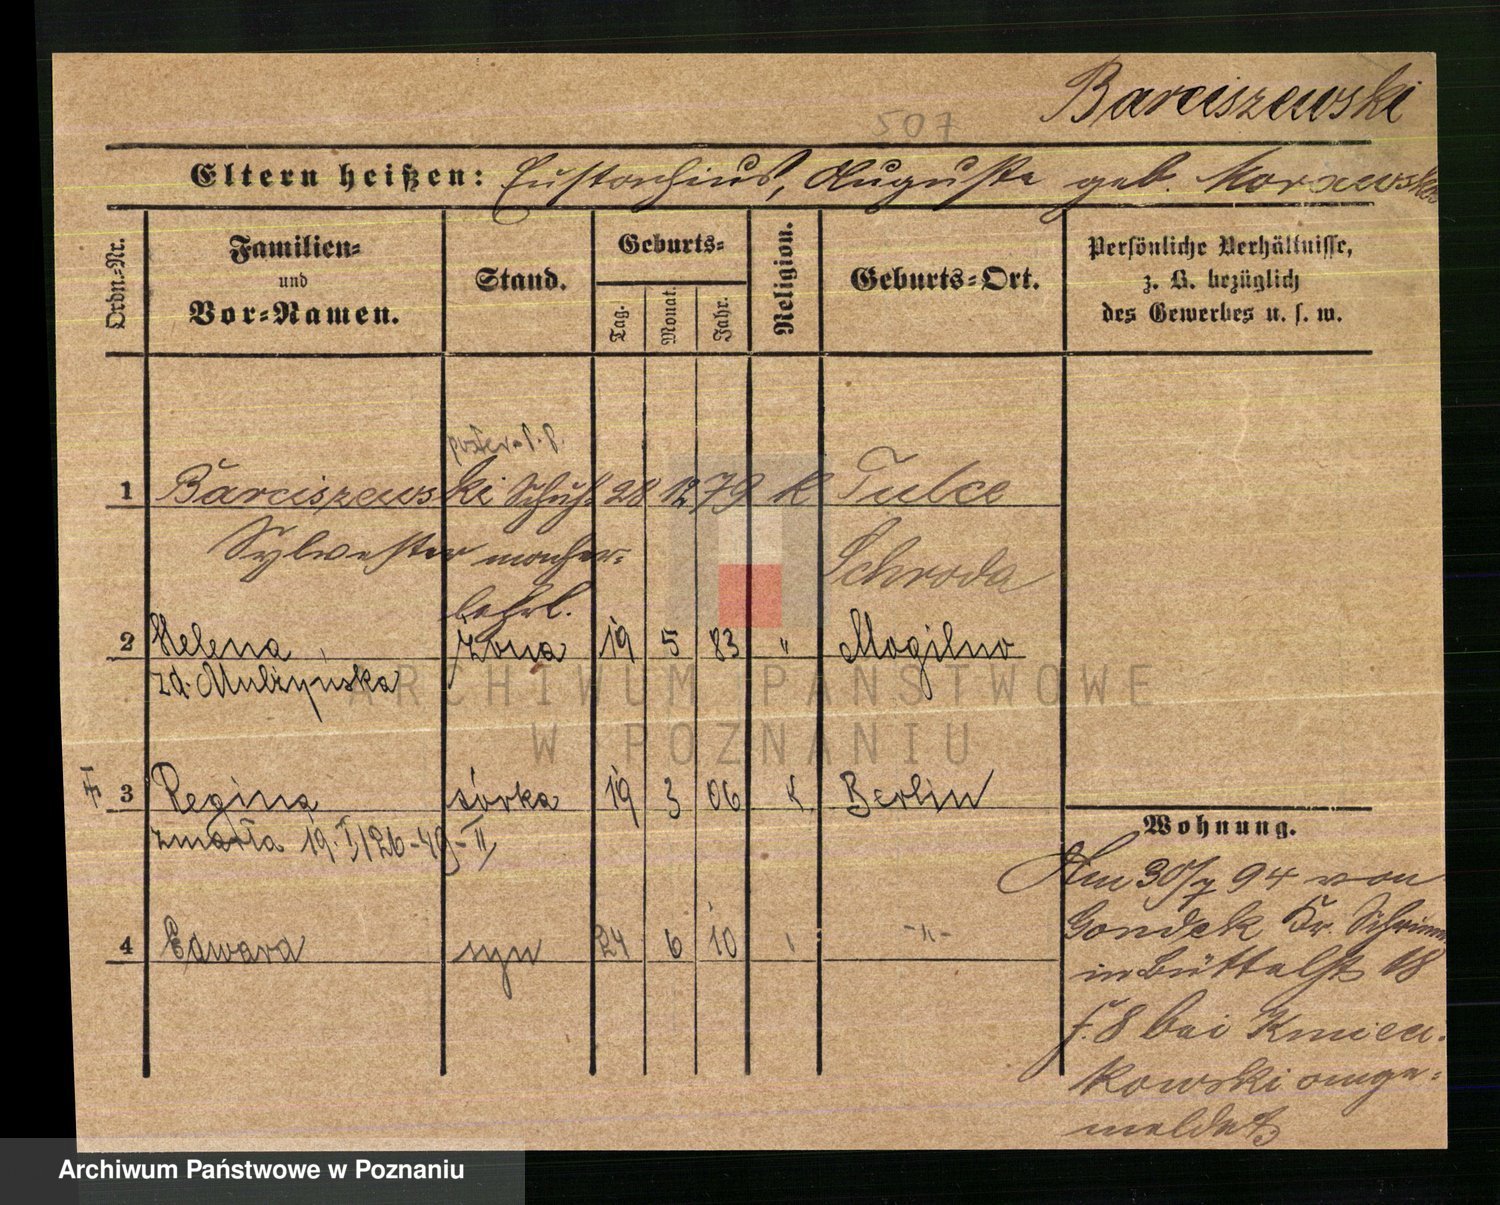 Barciszewski
507
Eltern heißen: Eustachius, Auguste geb. Morawska
Ordn.-Nr.
Familien-
und
Vor-Namen.
Stand.
Geburts-
Tag.
Monat.
Jahr.
Religion.
Geburts-Ort.
Persönliche Verhältnisse,
z. B. bezüglich
des Gewerbes u. s. w.
1 Barciszewski Schuh- 28 12 79 k Tulce
Sylwester macher-
lehrl.
Schroda
2 Helena żona 19 5 83 " Mogilno
zd. Mulżyńska
3 Regina córka 19 3 06 k Berlin
zmarła 19. I/26-49-II
4 Edward syn 24 6 10 -"-
Wohnung.
Am 30/7 94 von
Gondek Kr. Schrimm
in Büttelst 18
f. 8 bei Kmieci-
kowski ange-
meldet
ARCHIWUM PAŃSTWOWE
W POZNANIU
Archiwum Państwowe w Poznaniu